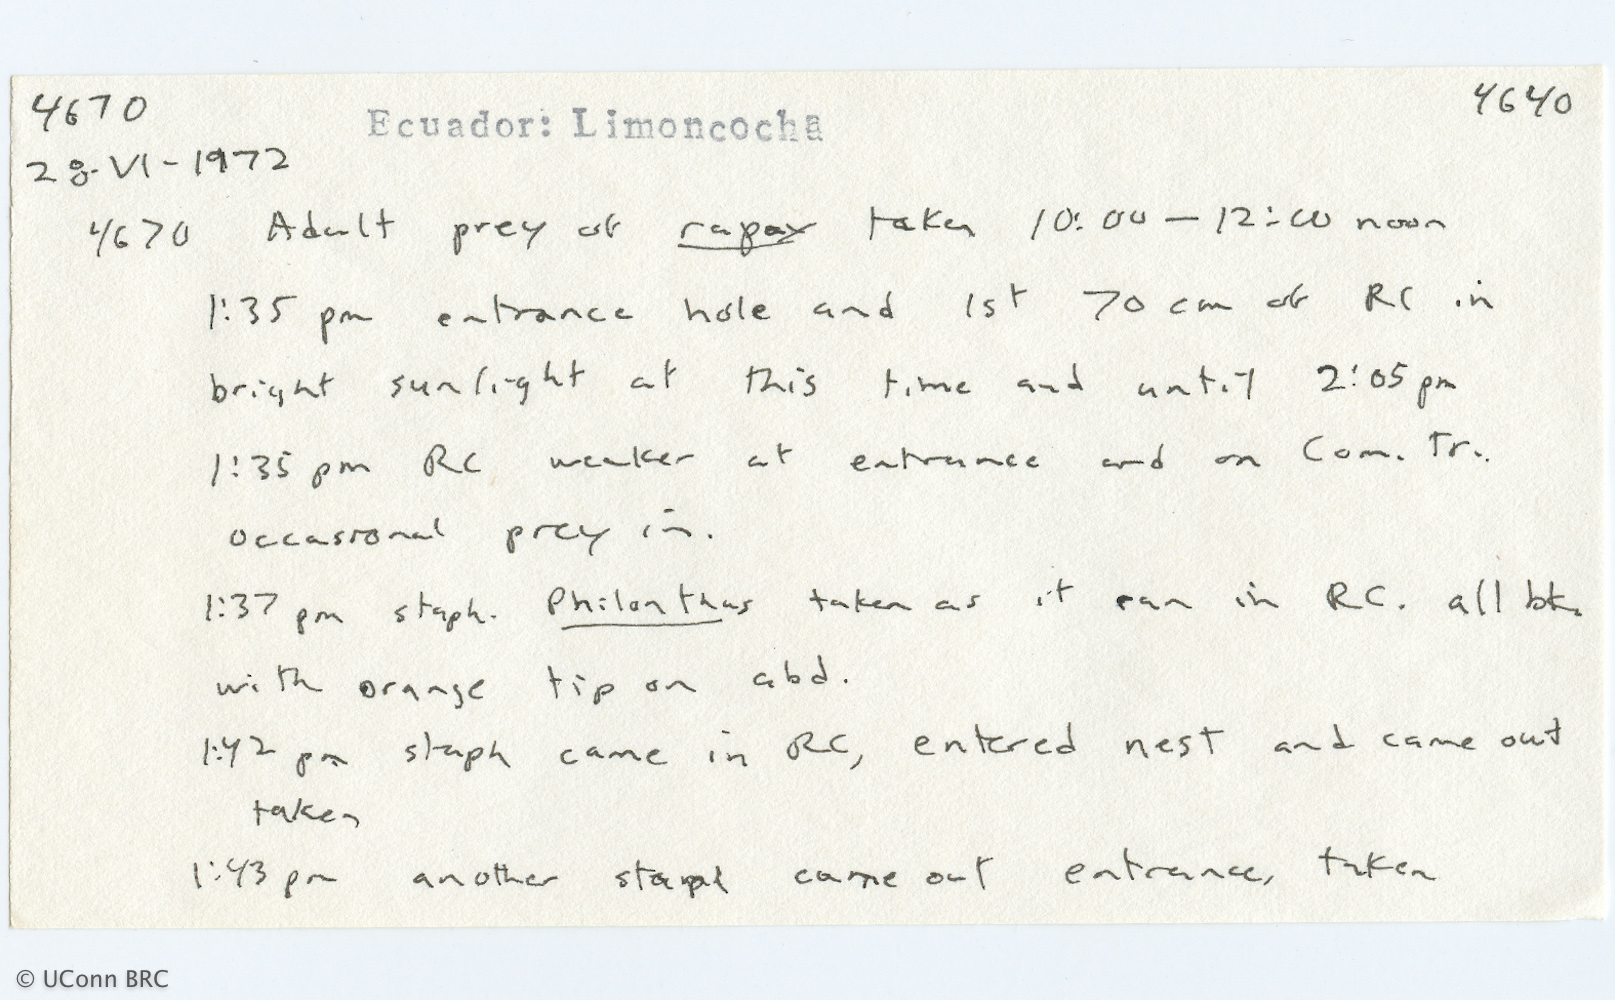 4670
4640
Ecuador: Limoncocha
28-VI-1972
4670 Adult prey of rapax taken 10:00 — 12:00 noon
1:35 pm entrance hole and 1st 70 cm of RC in
bright sunlight at this time and until 2:05 pm
1:35 pm RC weaker at entrance and on Com. Tr..
occasional prey in.
1:37 pm staph. Philonthus taken as it ran in RC. all bk.
with orange tip on abd.
1:42 pm staph came in RC, entered nest and came out
taken
1:43 pm another staph came out entrance, taken
© UConn BRC